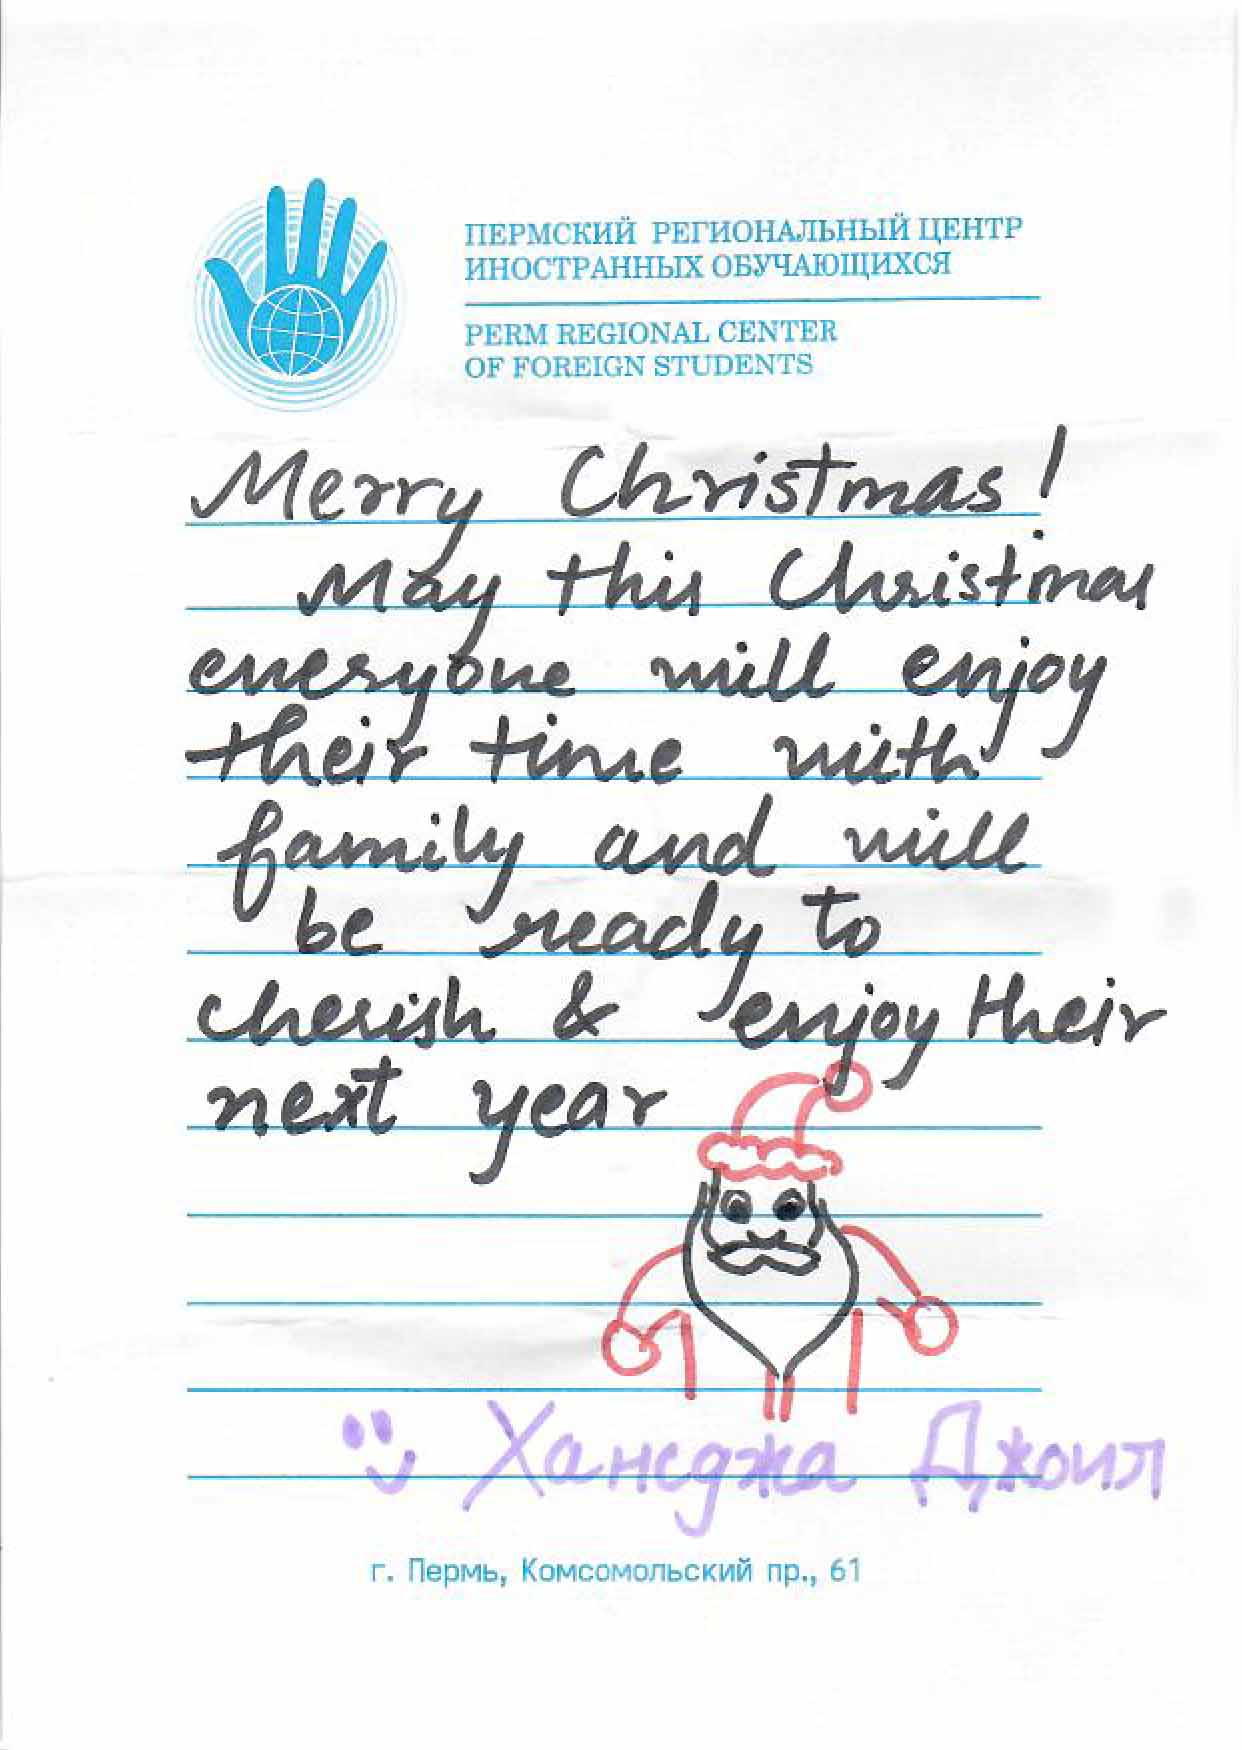 ПЕРМСКИЙ РЕГИОНАЛЬНЫЙ ЦЕНТР
ИНОСТРАННЫХ ОБУЧАЮЩИХСЯ
PERM REGIONAL CENTER
OF FOREIGN STUDENTS
Merry Christmas!
May this Christmas
everyone will enjoy
their time with
family and will
be ready to
cherish & enjoy their
next year
Хансджа Джоил
г. Пермь, Комсомольский пр., 61